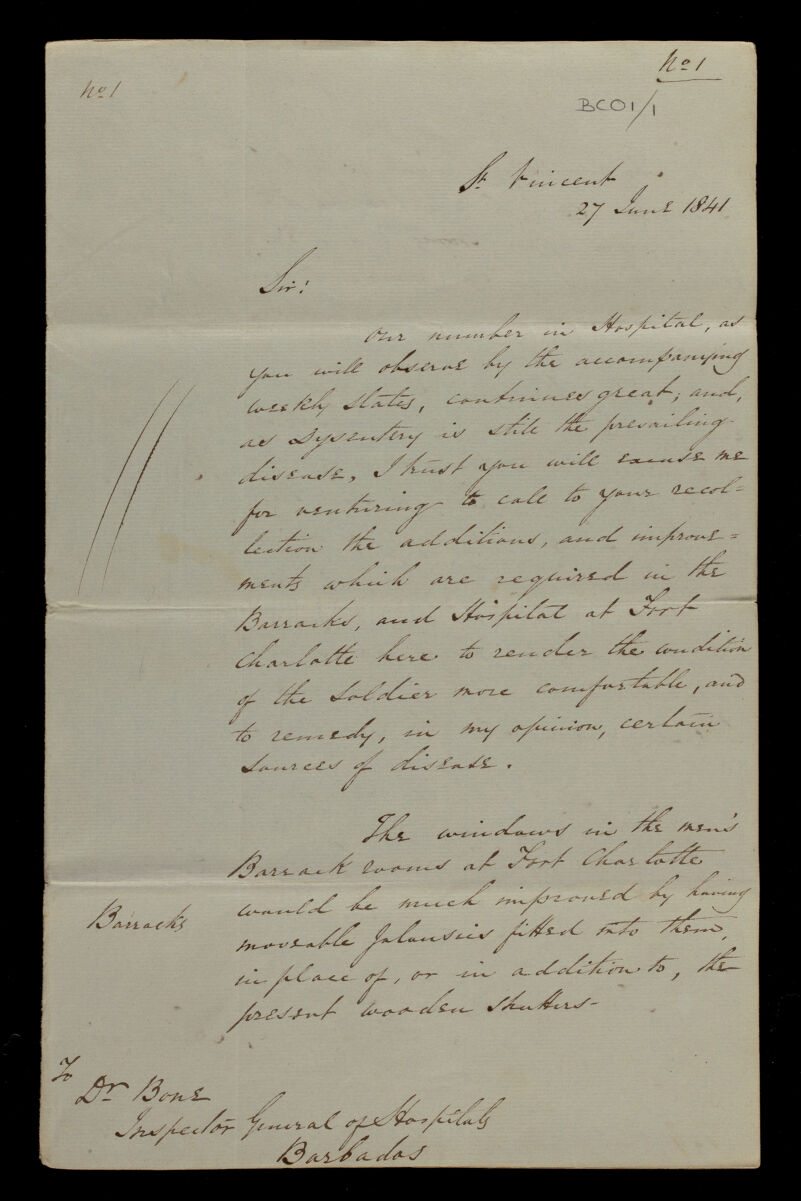 No 1
No 1
BCO1/1
St Vincent
27 June 1841
Sir!
Our number in Hospital, as
you will observe by the accompanying
weekly states, continues great; and,
as Dysentery is still the prevailing
disease, I trust you will excuse me
for venturing to call to your recol=
lection the additions, and improve=
ments which are required in the
Barracks, and Hospital at Fort
Charlotte here to render the condition
of the Soldier more comfortable, and
to remedy, in my opinion, certain
sources of disease.
The windows in the men's
Barrack rooms at Fort Charlotte
would be much improved by having
Barracks
moveable Jalousies fitted into them,
in place of, or in addition to, the
present wooden shutters-
To
Dr Bone
Inspector General of Hospitals
Barbados